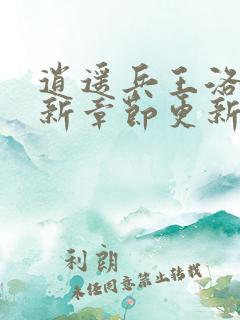 逍遥兵王洛
新章节更新
利朗
未经同意禁止转载